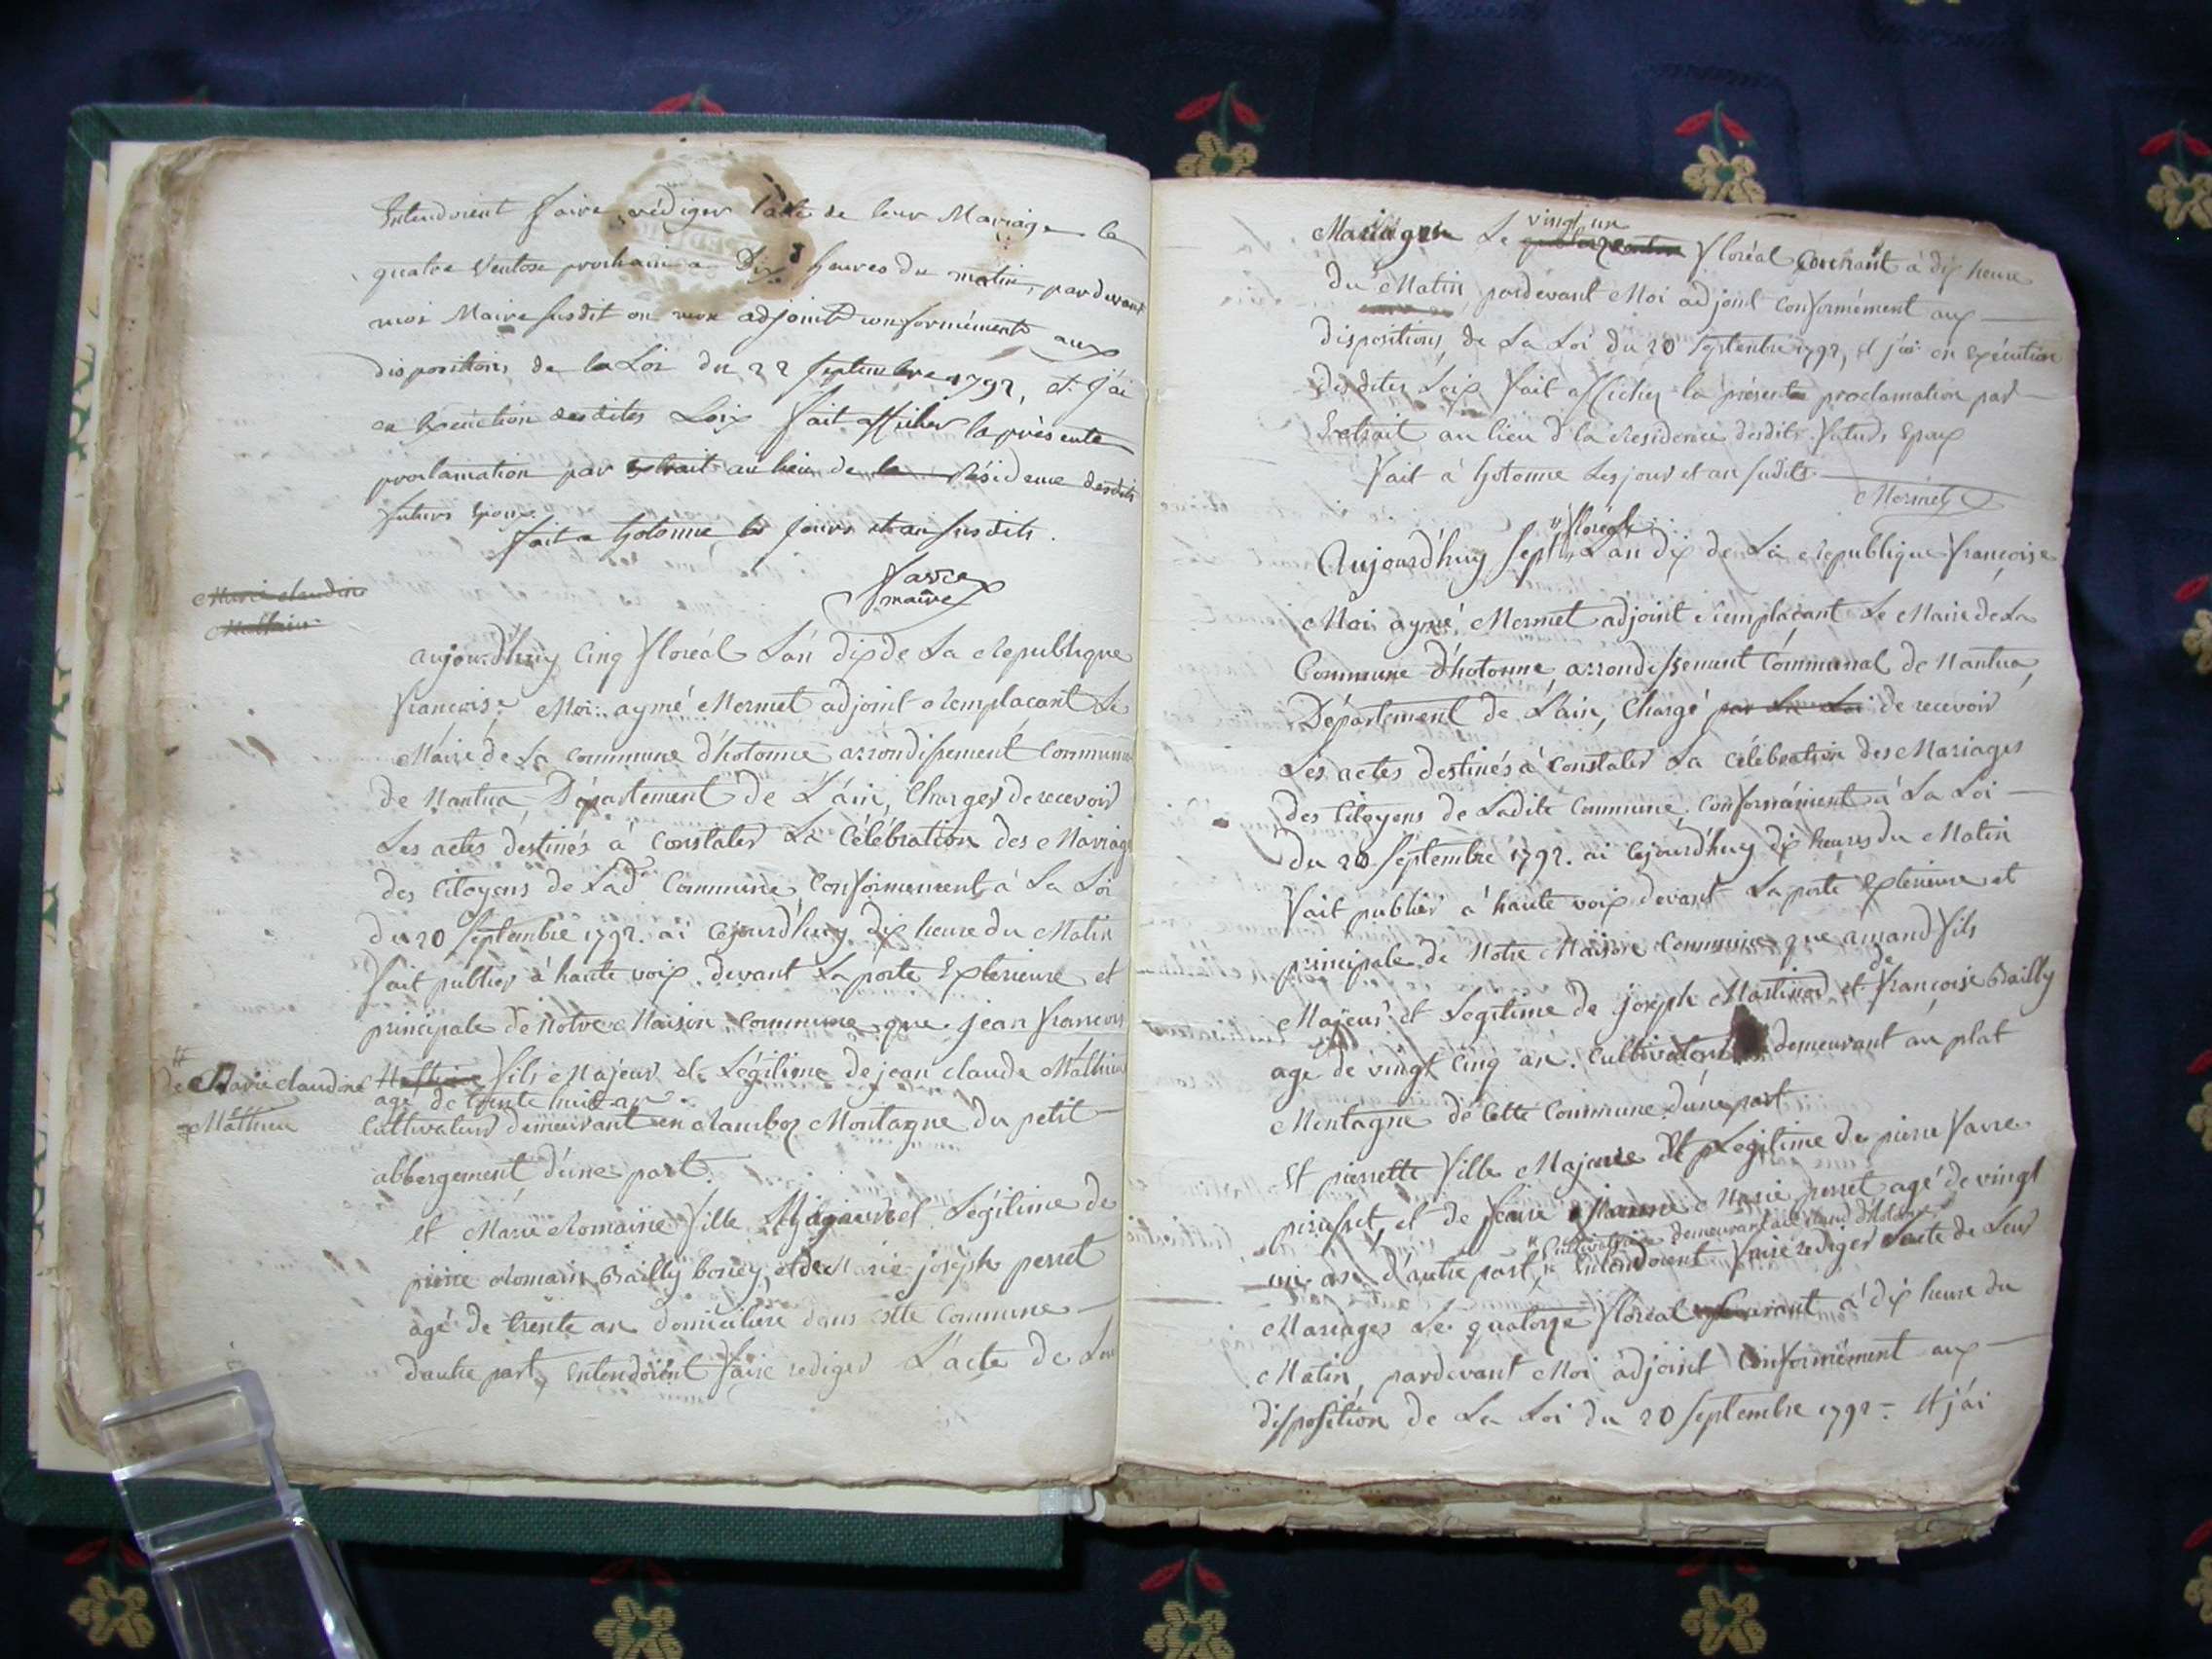 Entendoient faire rédiger l'acte de leur Mariage le
quatre Ventose prochain a Dix heures du matin, pardevant
moi Maire susdit ou mon adjoint conformément aux
dispositions de la Loi du 22 septembre 1792, et j'ai
en Execution desdites Loix fait afficher la présente
proclamation par Extrait au lieu de la Résidence desdits
futurs Epoux.
fait a hotonne les jours et an susdits.
favre
maire
Marie claudine
Mathieu
aujourd'huy Cinq floréal L'an dix de La Republique
françoise Moi aymé Mermet adjoint Remplacant Le
Maire de La Commune d'hotonne arrondissement Commun
de Nantua Département de L'ain, Charger de recevoir
Les actes destinés à Constater La Célébration des Mariag
des Citoyens de Lad Commune Conformement à La Loi
du 20 Septembre 1792. ai cejourd'huy dix heure du Matin
fait publier à haute voix devant La porte Exterieure et
principale de Notre Maison Commune que jean francois
de Marie claudine fils Majeur et Légitime de jean claude Mathieu
age de trente huit an
Mathieu Cultivateur demeurant en Monta​gne du petit
abbergement d'une part.
et Marie Romaine fille Majeure et Légitime de
pierre Romain Bailly boney, et de Marie joseph perret
agé de trente an domiciliére dans cette Commune
d'autre part, Entendoient faire rediger L'acte de Leur
Mariages Le vingt un floréal Courant à dix heure
du Matin pardevant Moi adjoint Conformément aux
dispositions de La Loi du 20 Septembre 1792, et j'ai en Exécution
desdites Loix fait afficher la présente proclamation par
Extrait au lieu d la Residence desdits futurs Epoux
fait à hotonne Les jour et an susdits
Mermet
Aujourd'huy Sept floréal L'an dix de La Republique françoise
Moi aymé Mermet adjoint Remplaçant Le Maire de La
Commune d'hotonne, arrondissement Communal de Nantua,
Département de L'ain, Chargé par La Loi de recevoir
Les actes destinés à Constater La Célébration des Mariages
des Citoyens de Ladite Commune, Conformément à La Loi
du 20 Septembre 1792. ai cejourd'huy dix heures du Matin
fait publier à haute voix devant La porte Exterieure et
principale de Notre Maison Commune que amand fils
Majeur et Legitime de joseph Martinod et de françoise Bailly
age de vingt Cinq an. Cultivateur demeurant au plat
Montagne de cette Commune d'une part
Et pierrette fille Majeure Et Legitime de pierre favre
et de jeanne Marie perret agé de vingt
Cultivatrice demeurant
un an d'autre part, Entendoient faire rediger L'acte de Leur
Mariages Le quatorze floréal Courant à dix heure du
Matin, pardevant Moi adjoint Conformément aux
disposition de La Loi du 20 Septembre 1792 - Et j'ai